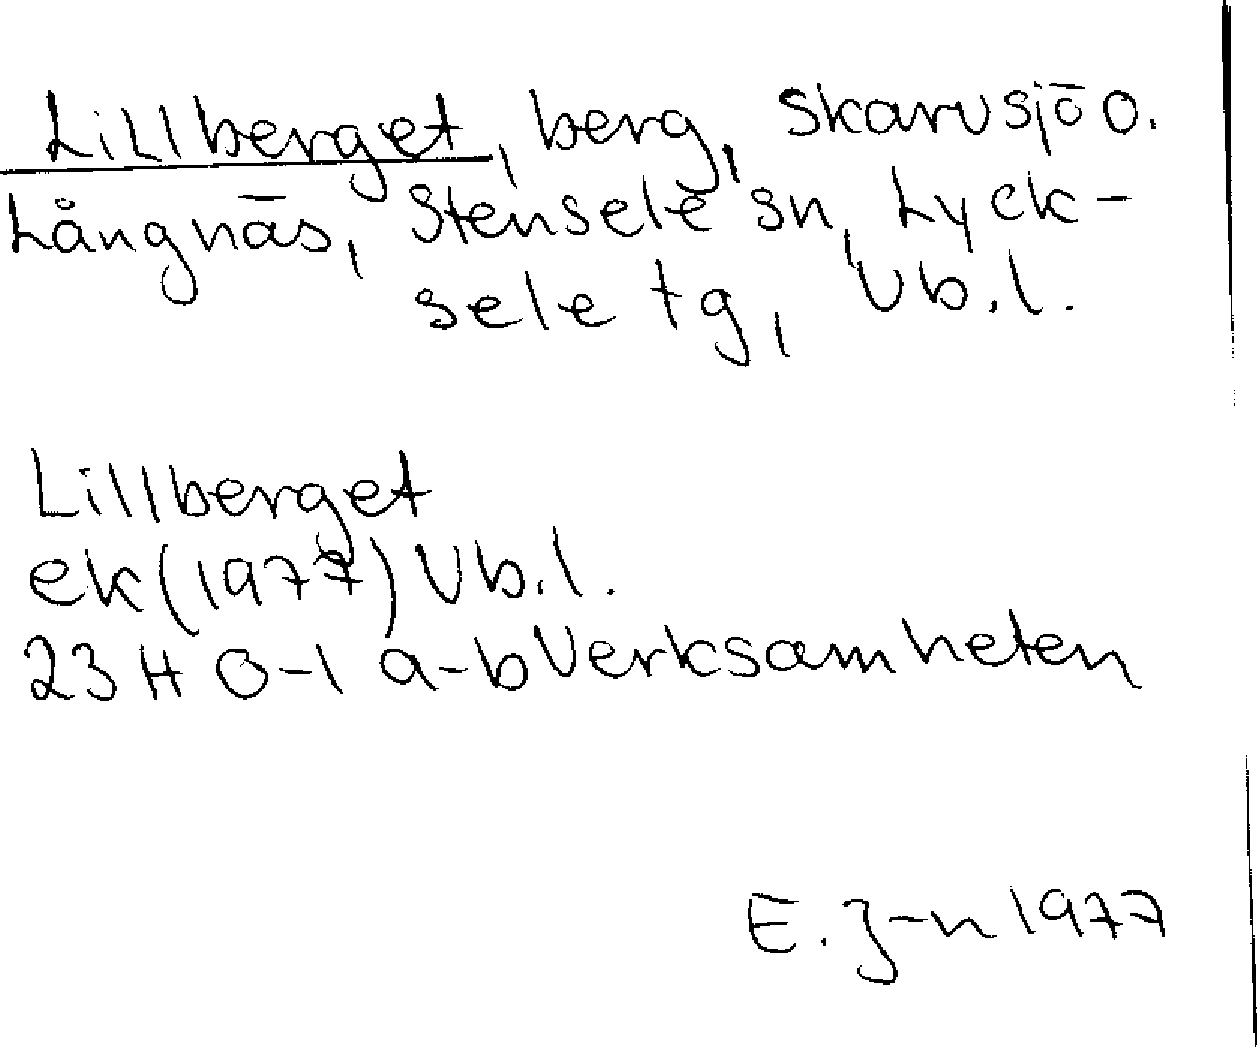 Lillberget, berg, Skarvsjö o.
Långnäs, Stensele sn, Lyck-
sele tg, Vb.l.
Lillberget
ek(1977) Vb.l.
23H 0-1 a-b Verksamheten
E. J-n 1977